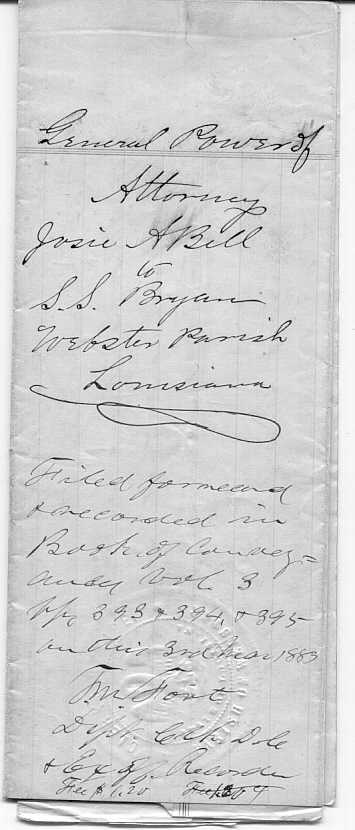 General Power of
Attorney
Josie A Bell
to
S.S. Bryan
Webster Parish
Louisiana
Filed for record
& recorded in
Book of Convey=
ances Vol. 3
pp, 393 & 394, & 395
on this 3rd Mar 1883
Fort
Dept. Clk. D.C.
& Ex Off. Recorder
Fee $1.20